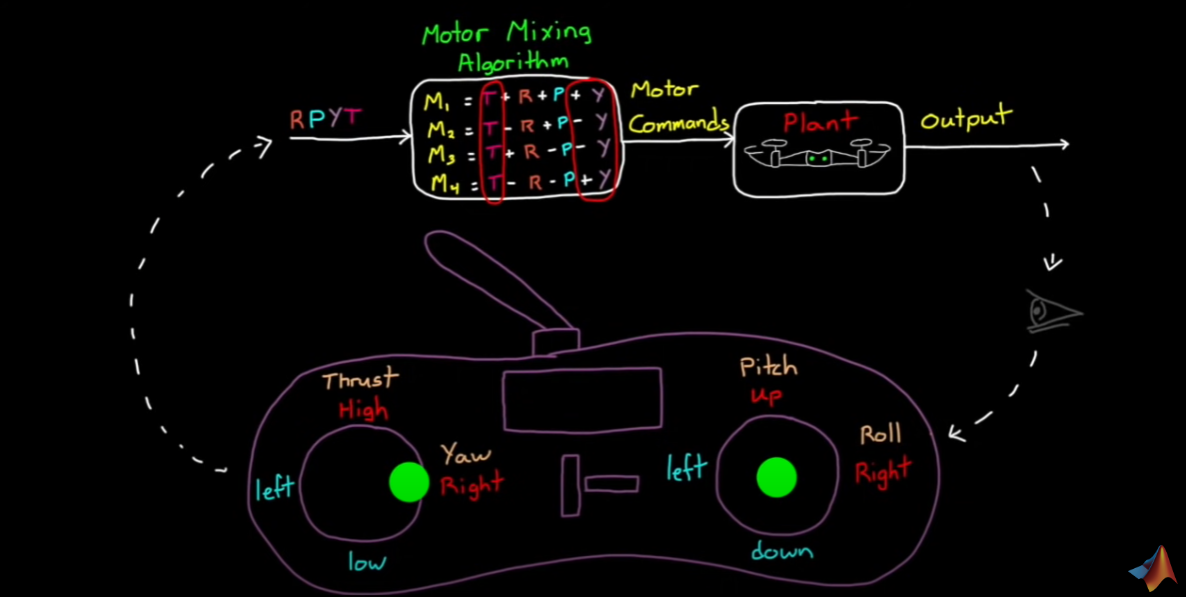 Motor Mixing
Algorithm
RPYT
M1 = T + R + P + Y
M2 = T - R + P - Y
M3 = T + R - P - Y
M4 = T - R - P + Y
Motor
Commands
Plant
Output
Thrust
High
Yaw
Right
left
low
Pitch
up
Roll
Right
left
down